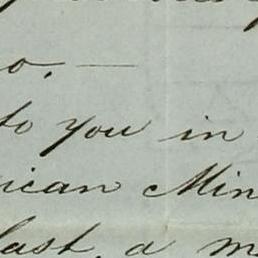 o. —
to you in
ican Min
last, a m